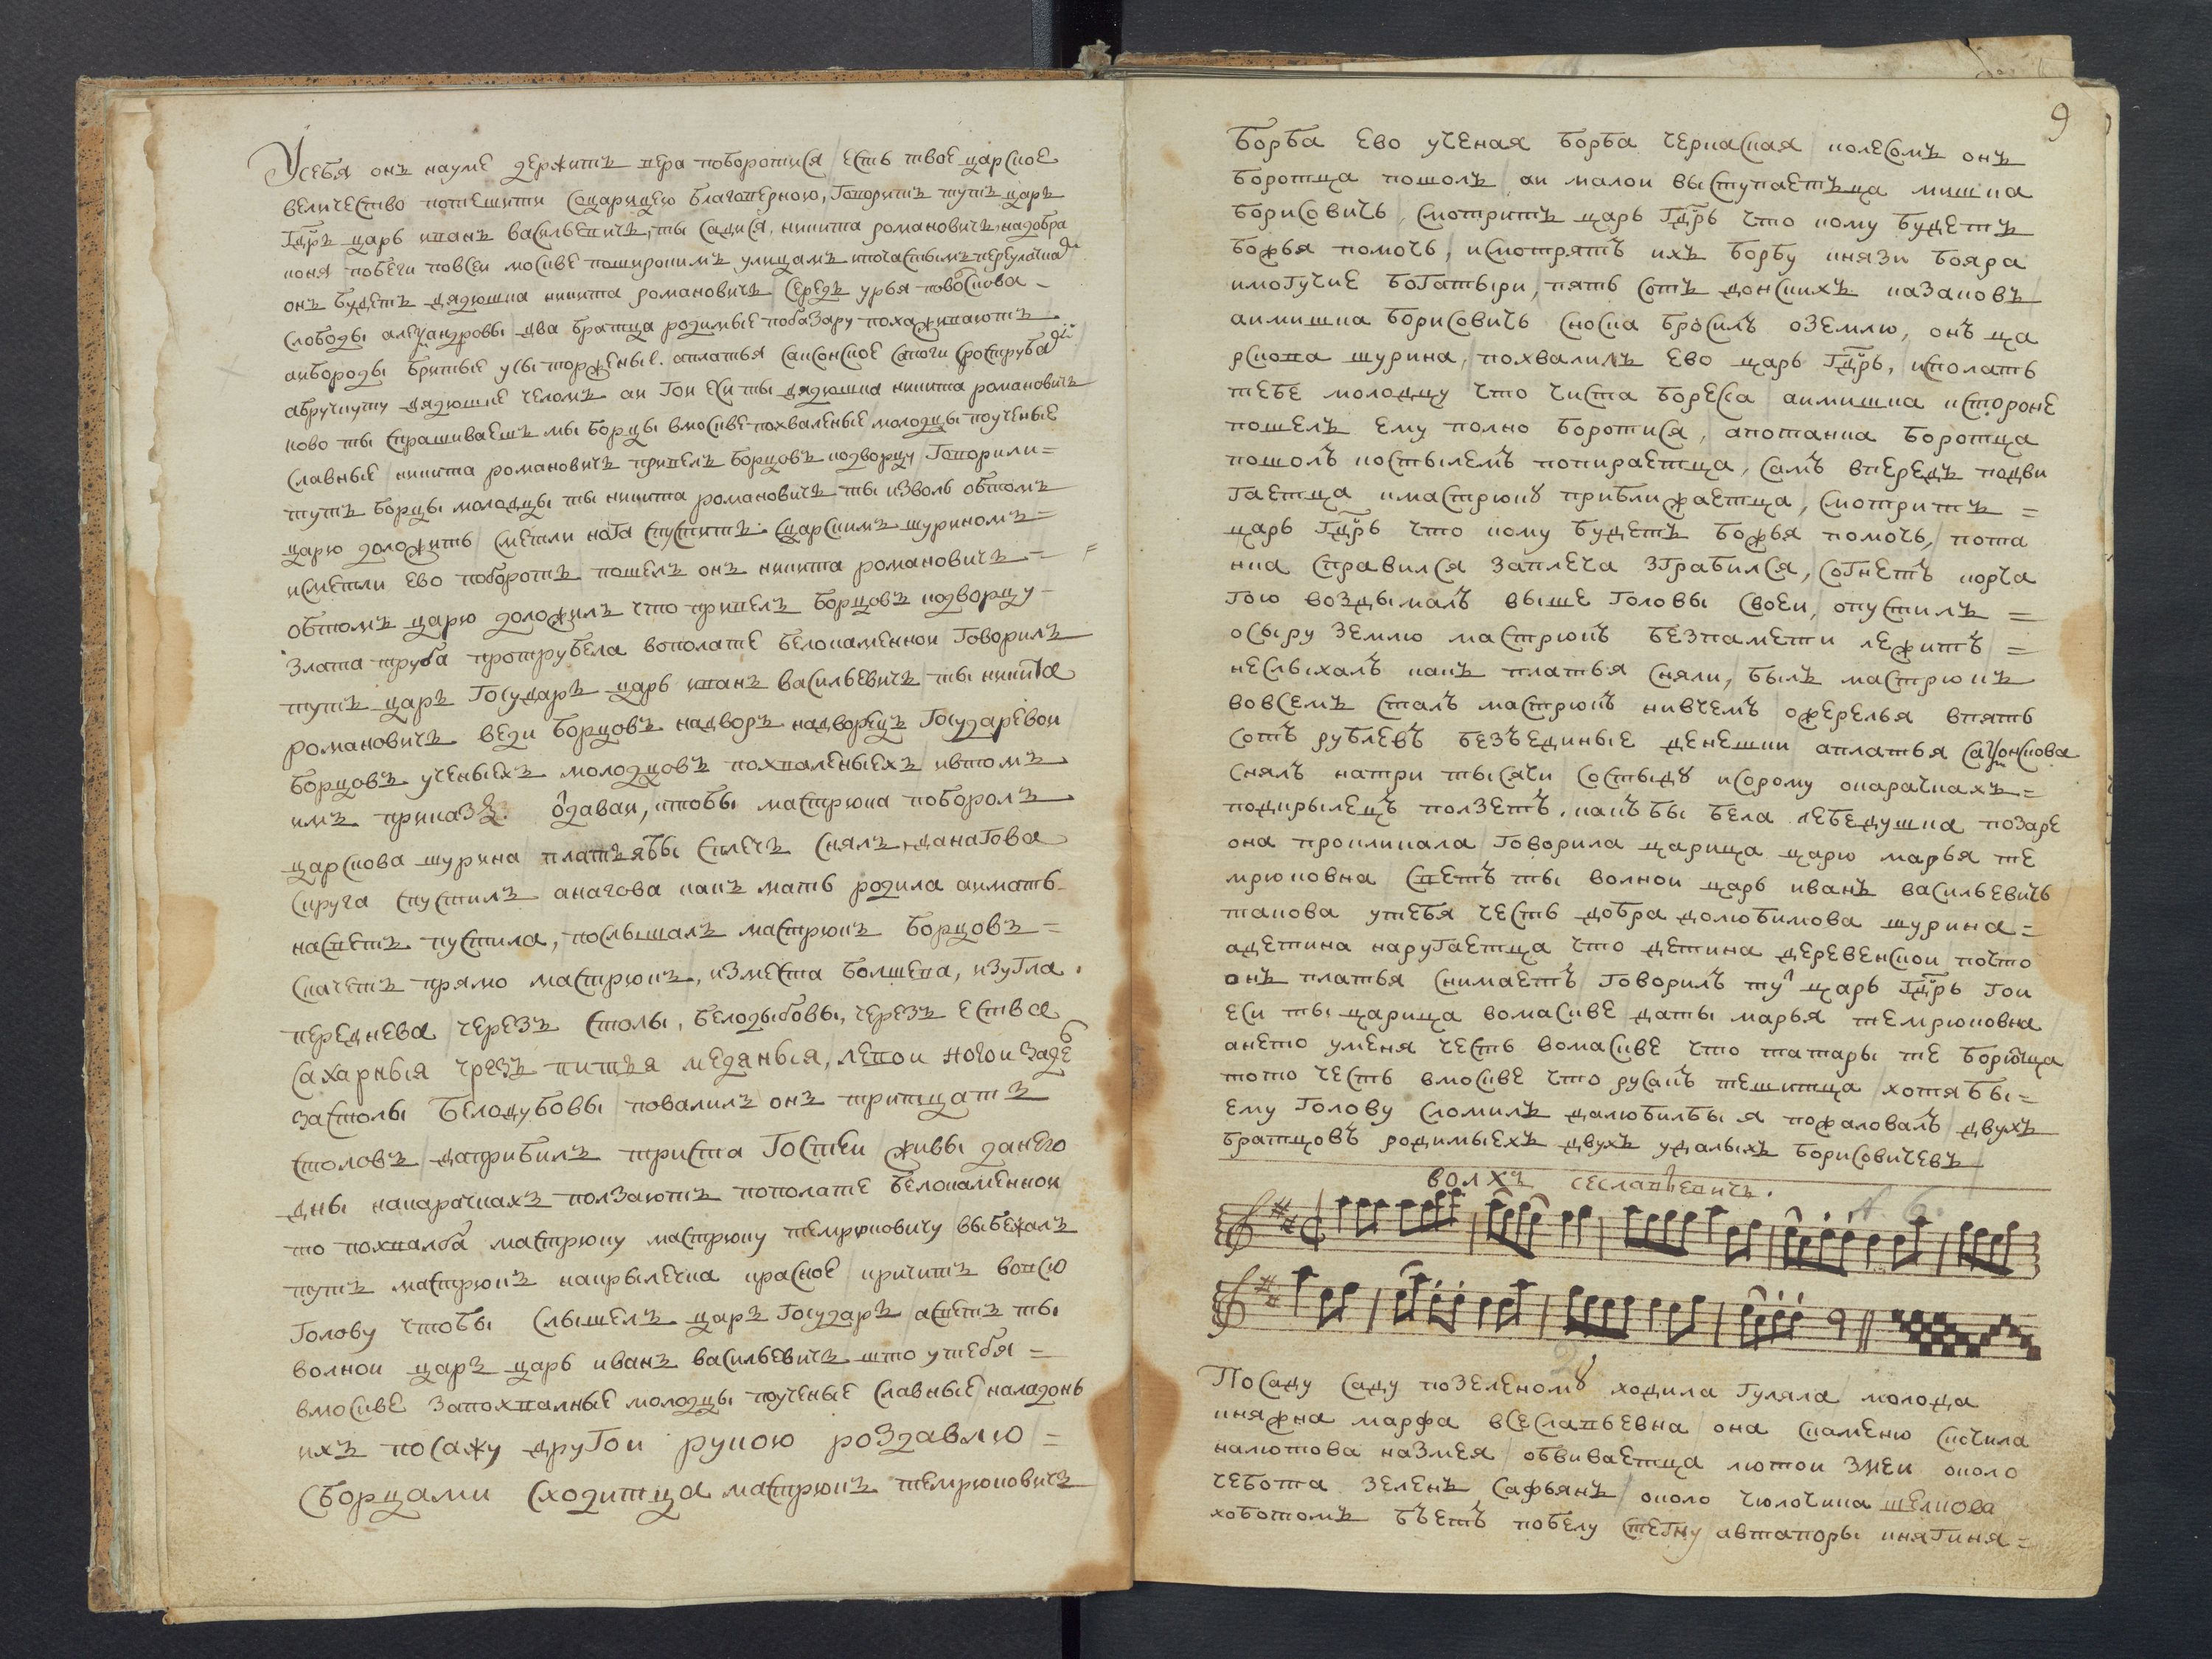 Усебя онъ науме держитъ вера поборотися есть твое царское
величество потешити соцарицею благоверною, говоритъ тутъ царъ
Гдрь царь иванъ васильевичъ, ты садися, никита романовичъ, надобра
коня побеги повсеи москве пошырокимъ улицамъ ипочастымъ переулачка
онъ будетъ дядюшка никита романовичъ середь урья повоскова
слободы александровы два братца родимые побазару похаживаютъ
аибороды бритые усы торженые. аплатья саксонское сапоги сроструба
абручкуту дядюшке челомъ аи гои еси ты дядюшка никита романовичъ
ково ты спрашиваешъ мы борцы вмоскве похваленые молодцы поученые
славные никита романовичъ привелъ борцовъ кодворцу говорили=
тутъ борцы молодцы ты никита романовичъ ты изволь обтомъ
царю доложить сметли нога спуститъ сцарскимъ шуриномъ=
исметли ево поборотъ пошелъ онъ никита романовичъ=
обтомъ царю доложилъ что привелъ борцовъ кодворцу-
злата труба протрубела вополате белокаменнои говорилъ
тутъ царъ государъ царь иванъ васильевичъ ты никита
романовичъ веди борцовъ надворъ надворецъ государевои
борцовъ ученыехъ молодцовъ похваленыехъ ивтомъ
имъ приказъ одаваи, ктобы мастрюка поборолъ
царскова шурина платьябы сплечъ снялъ данагова
скруга спустилъ анагова какъ мать родила аимать
насветъ пустила, послышалъ мастрюкъ борцовъ=
скачетъ прямо мастрюкъ, изместа болшева, изугла
переднева через столы, белодыбовы, черезъ ества
сахарныя чрезъ питья медяныя, левои ногои заде
застолы белодубовы повалилъ онъ тритцатъ
столовъ даприбилъ триста гостеи живы данего
дны накарачкахъ ползаютъ пополате белокаменнои
то похвалба мастрюку мастрюку темрюковичу выбежалъ
тутъ мастрюкъ накрылечка красное кричитъ вовсю
голову чтобы слышелъ царъ государъ асветъ ты
волнои царъ царь иванъ васильевичъ што утебя=
вмоскве запохвалные молодцы поученые славные наладонь
ихъ посажу другои рукою роздавлю=
Сборцами сходитца мастрюкъ темрюковичъ
9
борба ево ученая борба черкаская колесомъ онъ
боротца пошолъ аи малои выступаетъца мишка
борисовичь, смотритъ царь Гдрь что кому будетъ
божья помочь, исмотрятъ ихъ борбу князи бояра
имогучие богатыри, пять сотъ донскихъ казаковъ
аимишка борисовичь сноска бросилъ оземлю, онъ ца
рскова шурина, похвалилъ ево царь Гдрь, исполать
тебе молодцу что чиста боресса аимишка кстороне
пошелъ ему полно боротися, апотанка боротца
пошолъ костылемъ попираетца, самъ впередъ подви
гаетца кмастрюку приближаетца, смотритъ=
царь Гдрь что кому будетъ божья помочь, пота
нка справился заплеча зграбился, согнетъ корча
гою воздымалъ выше головы своеи, опустилъ=
осыру землю мастрюкъ безпамети лежитъ=
неслыхалъ какъ платья сняли, былъ мастрюкъ
вовсемъ сталъ мастрюкъ нивчемъ ожерелья впять
сотъ рублевъ безъединые денешки аплатья саксонскова
снялъ натри тысячи состыду исорому окарачкахъ=
подкрылецъ ползетъ. какъбы бела лебедушка позаре
она прокликала говорила царица царю марья те
мрюковна светъ ты волнои царь иванъ васильевичь
такова утебя честь добра долюбимова шурина=
адетина наругаетца что детина деревенскои почто
онъ платья снимаетъ говорилъ ту царь Гдрь гои
еси ты царица вомаскве даты марья темрюковна
ането уменя честь вомаскве что татары те борютца
тото честь вмоскве что русакъ тешитца хотябы=
ему голову сломилъ далюбилбы я пожаловалъ двухъ
братцовъ родимыехъ двухъ удалыхъ борисовичевъ
волхъ сеславьевичъ.
N. 6.
Посаду саду позеленому ходила гуляла молода
княжна марфа всеславьевна она скаменю скочила
налютова назмея обвиваетца лютои змеи около
чебота зеленъ сафьянъ около чюлочика шелкова
хоботомъ бъетъ побелу стегну автапоры княгиня=